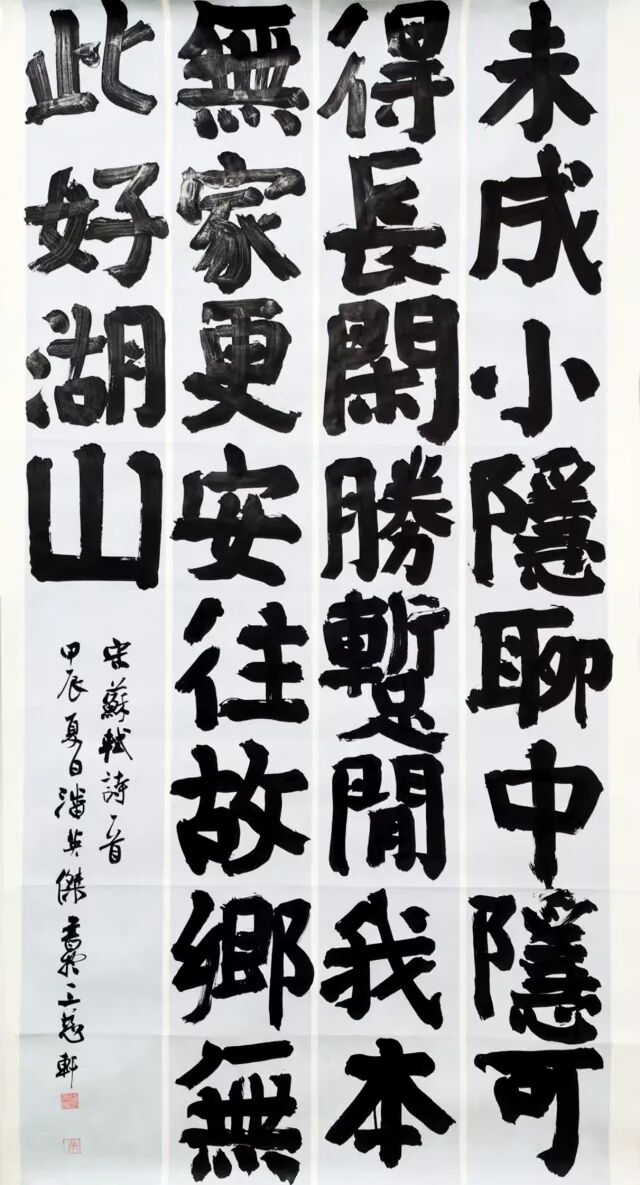 未成小隱聊中隱可
得長閑勝蹔閒我本
無家更安往故鄉無
此好湖山
宋蘇軾詩一首
甲辰夏日潘英傑書於軒